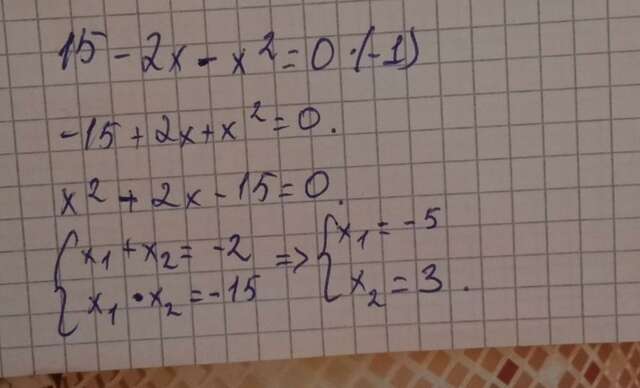 15 - 2x - x² = 0 ·(-1)
-15 + 2x + x² = 0.
x² + 2x - 15 = 0.
{ x₁ + x₂ = -2 => { x₁ = -5
{ x₁ · x₂ = -15 { x₂ = 3.